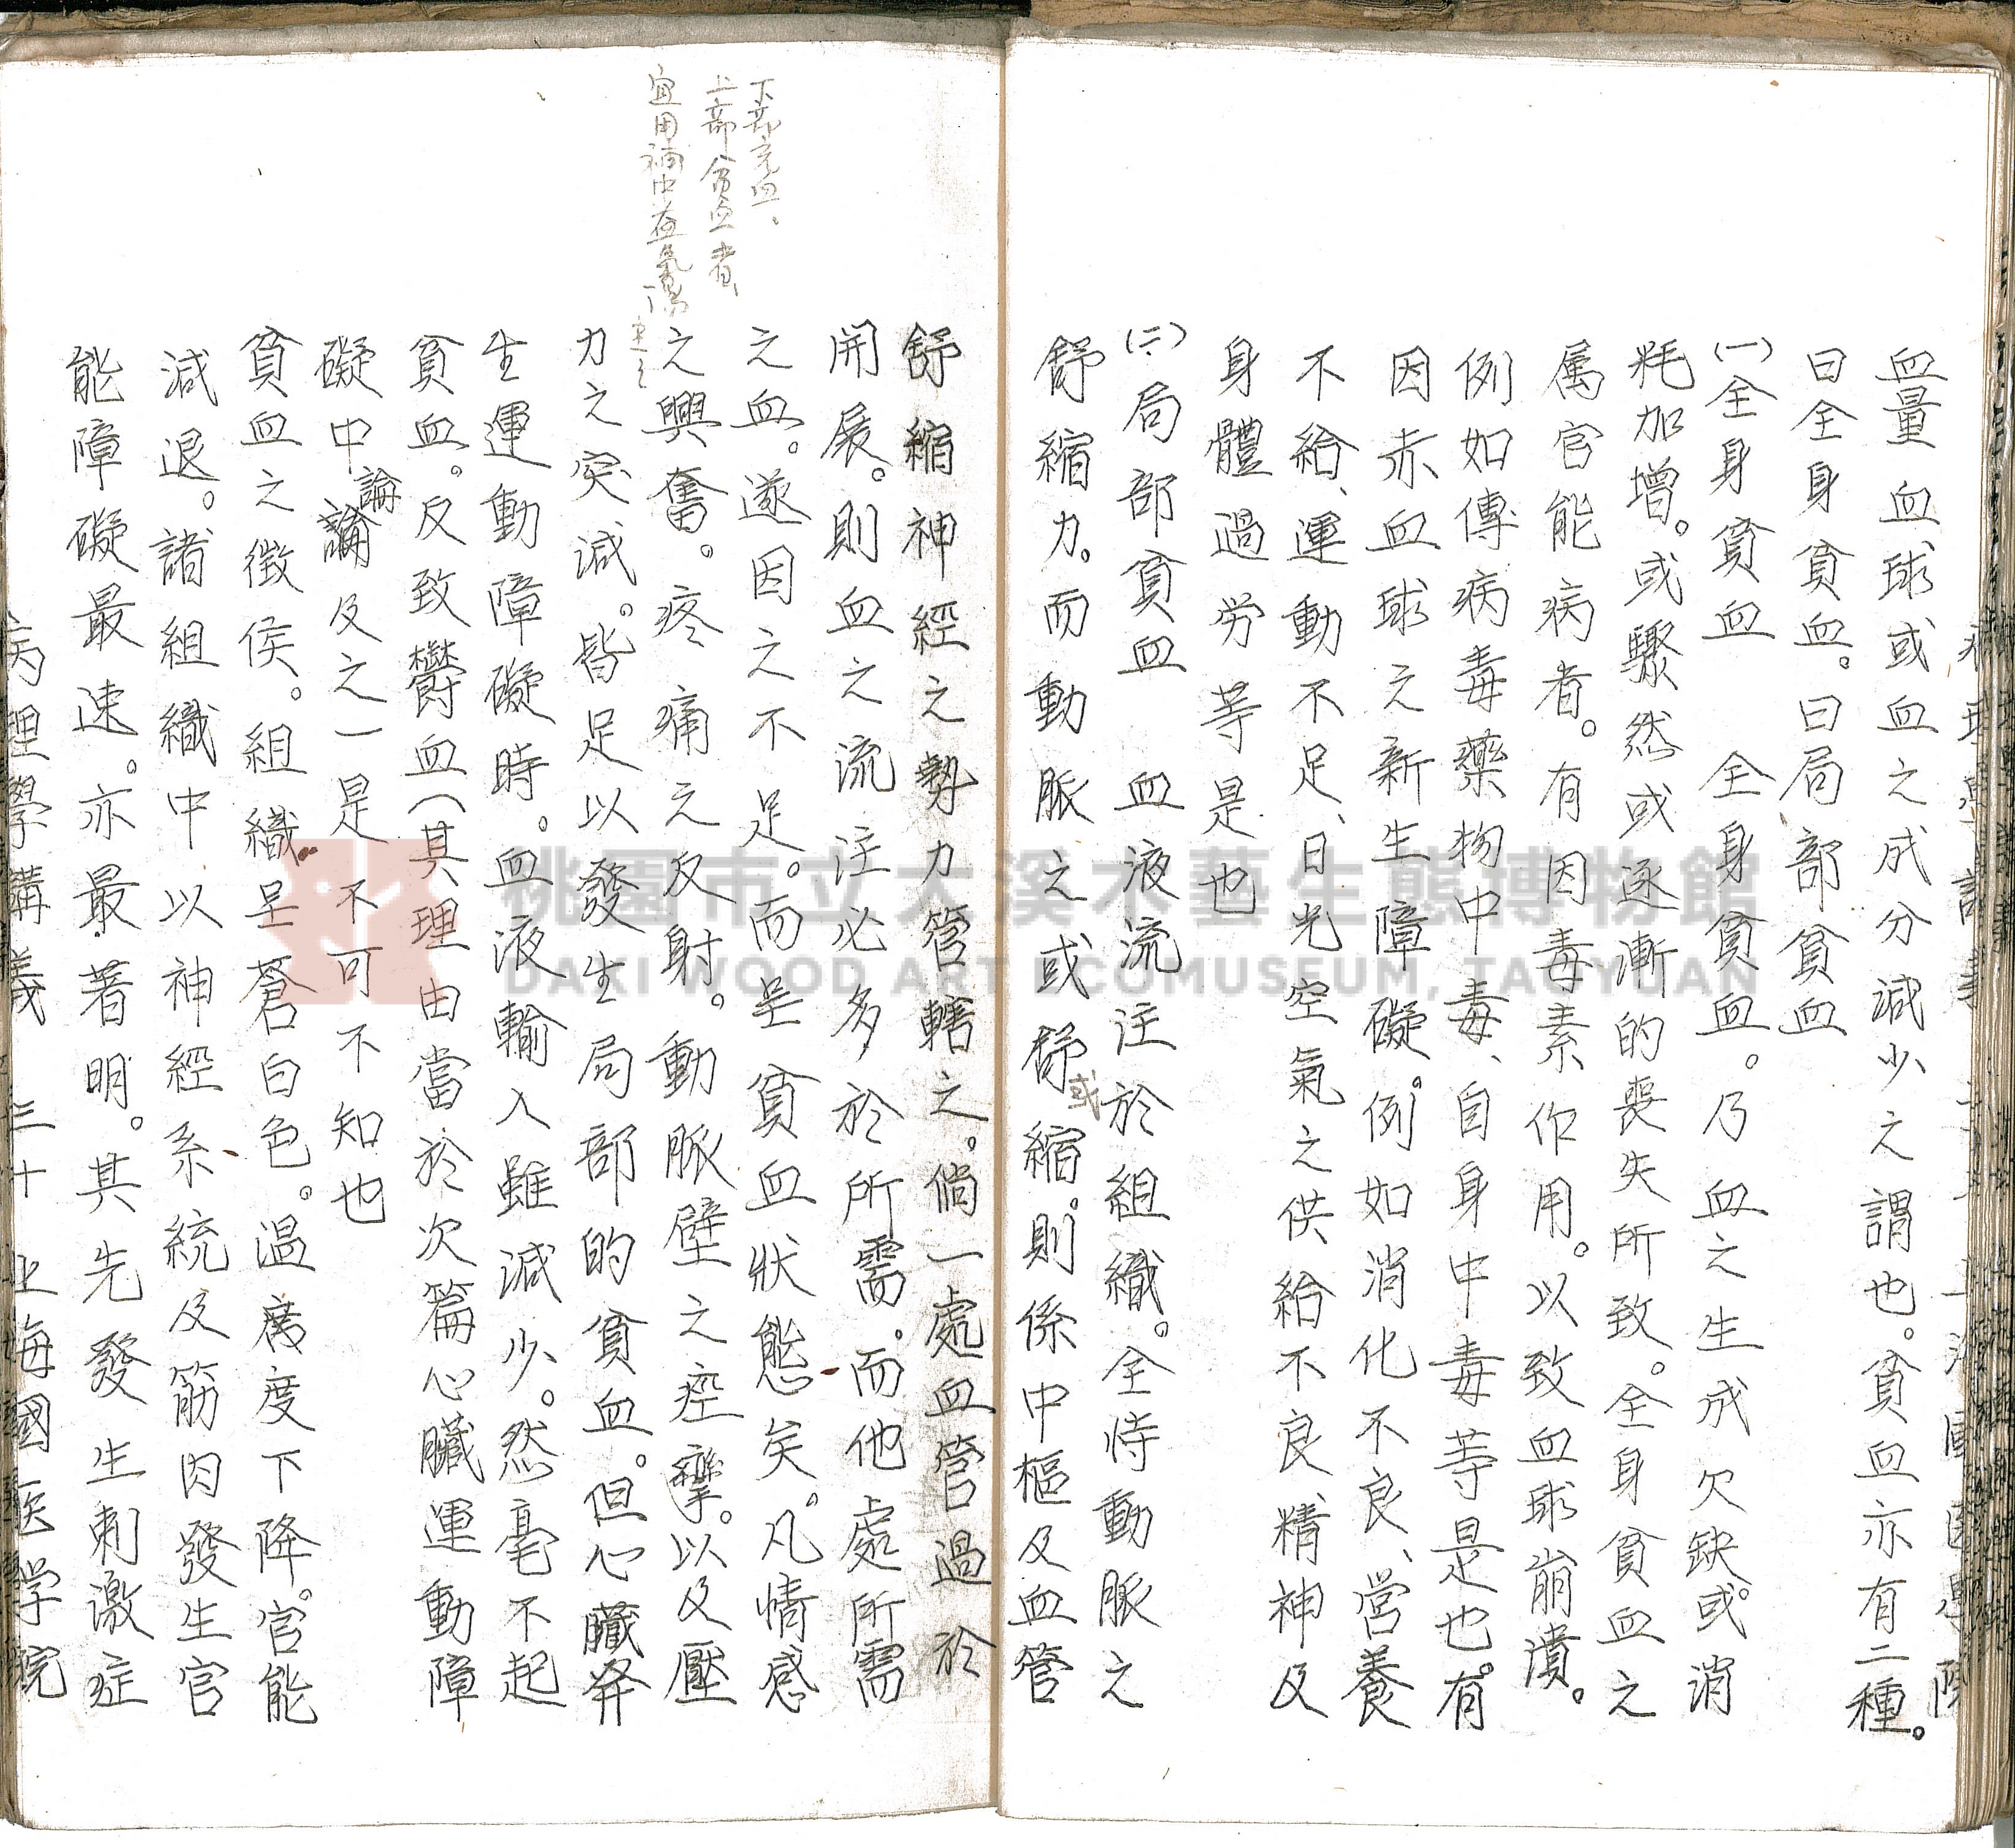 血量血球或血之成分減少之謂也。貧血亦有二種。
曰全身貧血。曰局部貧血
(一)全身貧血　全身貧血。乃血之生成欠缺。或消
耗加增。或驟然或逐漸的喪失所致。全身貧血之
屬官能病者。有因毒素作用。以致血球崩潰。
例如傳病毒藥物中毒、自身中毒等是也。有
因赤血球之新生障礙。例如消化不良、營養
不給、運動不足、日光空氣之供給不良、精神及
身體過労等是也
(二)局部貧血　血液流注於組織。全恃動脈之
舒縮力。而動脈之或舒或縮。則係中樞及血管
舒縮神經之勢力管轄之。倘一處血管過於
開展。則血之流注必多於所需。而他處所需
之血。遂因之不足。而呈貧血狀態矣。凡情感
之興奮。疼痛之反射。動脈壁之痙攣。以及壓
力之突減。皆足以發生局部的貧血。但心臟発
生運動障礙時。血液輸入雖減少。然毫不起
貧血。反致欝血(其理由當於次篇心臟運動障
礙中論論及之一是不可不知也
貧血之徴侯。組織呈蒼白色。温度下降。官能
減退。諸組織中以神經系統及筋肉發生官
能障礙最速。亦最著明。其先發生刺激症
病理學講義　三十　上海國医学院
下部充血。
上部貧血者
宜用補中益氣湯
桃園市立大溪木藝生態博物館
DAXI WOOD ART ECOMUSEUM, TAOYUAN